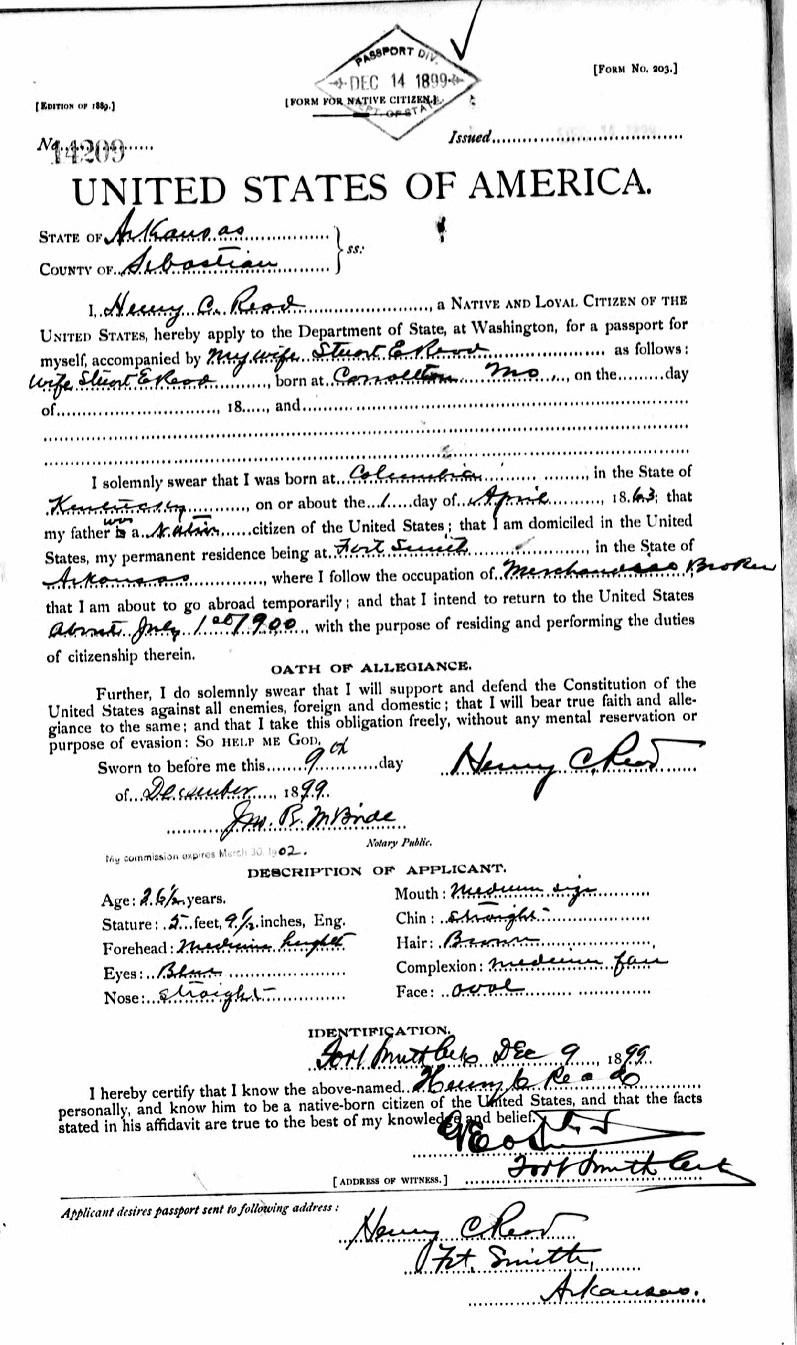 PASSPORT DIV.
DEC 14 1899
DEPT. OF STATE
[FORM NO. 203.]
[EDITION OF 1889.]
[FORM FOR NATIVE CITIZEN.]
No. 14209
Issued
UNITED STATES OF AMERICA.
STATE OF Arkansas
COUNTY OF Sebastian } ss:
I, Henry C. Read, a NATIVE AND LOYAL CITIZEN OF THE
UNITED STATES, hereby apply to the Department of State, at Washington, for a passport for
myself, accompanied by My wife Stuart E Read as follows:
Wife Stuart E Read, born at Carrollton Mo, on the day
of , 18 , and
I solemnly swear that I was born at Columbia, in the State of
Kentucky, on or about the 1 day of April, 1863; that
my father was a Native citizen of the United States; that I am domiciled in the United
States, my permanent residence being at Fort Smith, in the State of
Arkansas, where I follow the occupation of Merchandise Broker
that I am about to go abroad temporarily; and that I intend to return to the United States
About July 1st 1900, with the purpose of residing and performing the duties
of citizenship therein.
OATH OF ALLEGIANCE.
Further, I do solemnly swear that I will support and defend the Constitution of the
United States against all enemies, foreign and domestic; that I will bear true faith and alle-
giance to the same; and that I take this obligation freely, without any mental reservation or
purpose of evasion: SO HELP ME GOD.
Sworn to before me this 9th day
Henry C. Read
of December, 1899.
Jno. R. McBride
Notary Public.
My commission expires March 30, 1902.
DESCRIPTION OF APPLICANT.
Age: 36 1/2 years.
Mouth: Medium size
Stature: 5 feet, 9 1/2 inches, Eng.
Chin: straight
Forehead: Medium height
Hair: Brown
Eyes: Blue
Complexion: medium fair
Nose: straight
Face: oval
IDENTIFICATION.
Fort Smith Ark Dec 9, 1899
I hereby certify that I know the above-named Henry C Read
personally, and know him to be a native-born citizen of the United States, and that the facts
stated in his affidavit are true to the best of my knowledge and belief.
Geo
Fort Smith Ark
[ADDRESS OF WITNESS.]
Applicant desires passport sent to following address:
Henry C Read
Ft. Smith,
Arkansas.